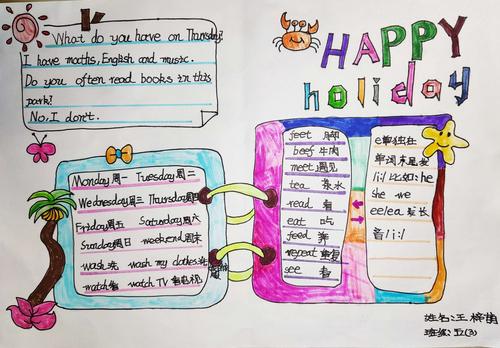 What do you have on Thursday?
I have maths, English and music.
Do you often read books in this
park?
No, I don't.
HAPPY
holiday
Monday周一 Tuesday周二
Wednesday周三 Thursday周四
Friday周五 Saturday周六
Sunday周日 weekend周末
wash洗 wash my clothes
watch看 watch TV看电视
feet 脚
beef 牛肉
meet 遇见
tea 茶水
read 看
eat 吃
feed 养
repeat 重复
see 看
e单独在
单词末尾发
/i:/ 比如:he
she we
ee/ea 发长
音/i:/
姓名:王梓萌
班级:五(3)